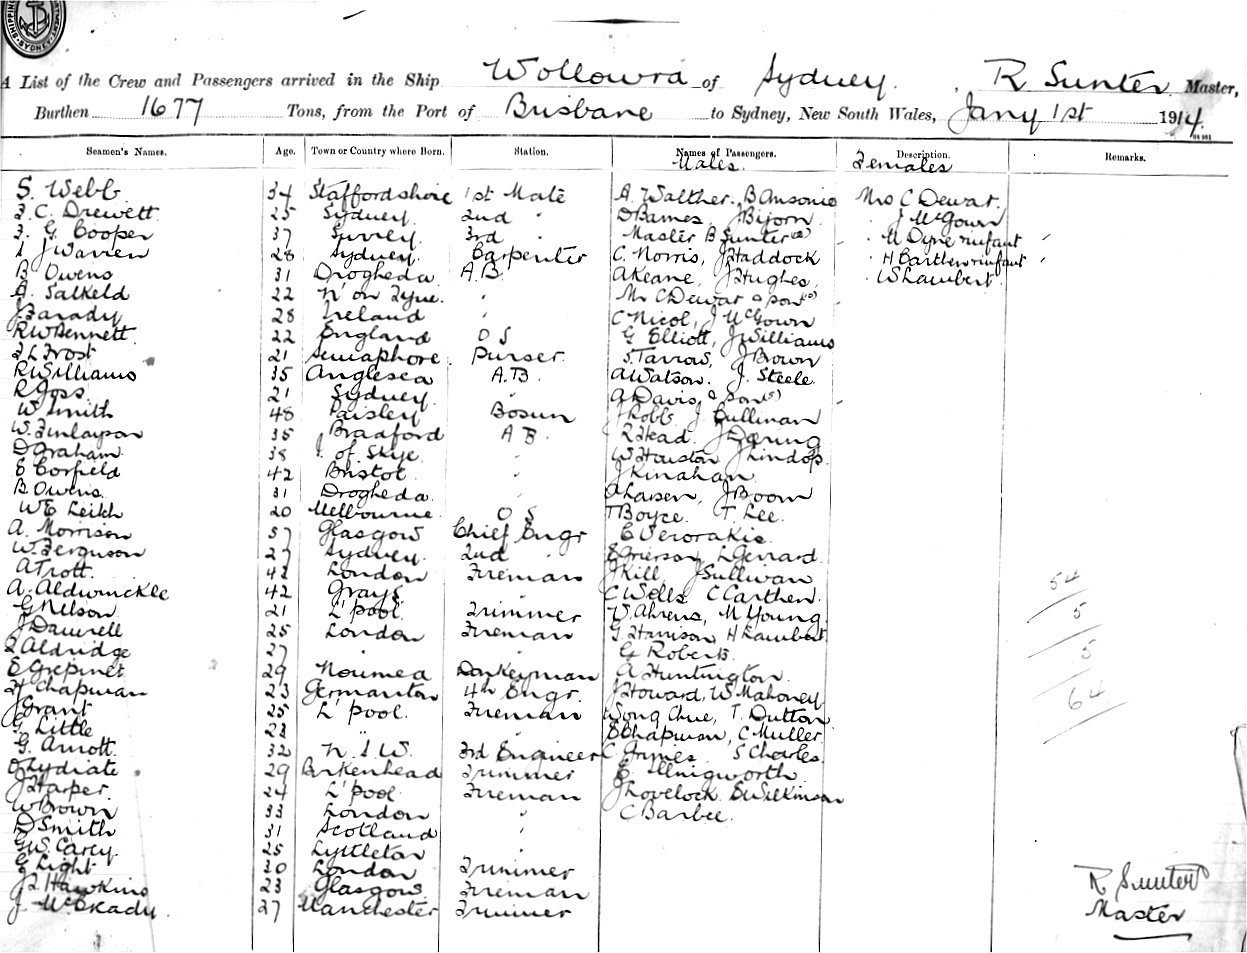 SHIPPING
SYDNEY
A List of the Crew and Passengers arrived in the Ship Wollowra of Sydney, R Sunter Master,
Burthen 1677 Tons, from the Port of Brisbane to Sydney, New South Wales, Jany 1st 1914.
Seamen's Names. Age. Town or Country where Born. Station. Names of Passengers. Description. Remarks.
Males Females
S. Webb 34 Staffordshire 1st Mate A. Walther. B Ansonie Mrs C Dewar.
F. C. Drewett 25 Sydney 2nd " D Barnes, J Bjorn " J McGown
F. G. Cooper 37 Surrey 3rd " Master B Sunter " M Dyne & infant
J Warren 28 Sydney Carpenter C. Norris, J Haddock " H Barthen & infant
B Owens 31 Drogheda A.B. A Keane, J Hughes, " W Lambert
A. Salkeld 22 N' on Tyne. " Mr C Dewar & son
J Barady 28 Ireland " C Nicol, J McGown
R W Bennett 22 England O S G Elliott, J Williams
F L Frost 21 Semaphore. Purser. S. Tarrow, J Brown
R Williams 35 Anglesea A.B. A Watson. J. Steele
R Joss 21 Sydney " A Davis, & son
W. Smith 48 Paisley Bosun J Robb J Cullinan
W. Finlayson 35 Bradford A B. R Head J Dering
D Graham 38 I. of Skye " W Houston J Lindop
E Corfield 42 Bristol " J Kinahan
B Owens. 31 Drogheda " A Larsen, J Boom
W E Leith 20 Melbourne O S T Boyce. T Lee.
A. Morrison 57 Glasgow Chief Engr E Verorakis
W. Ferguson 27 Sydney 2nd " E Grierson, L Gerrard
A Trott. 42 London Fireman J Kill J Sullivan
A. Aldwinckle 42 Grays " C Wells C Carthen 54
G Nelson 21 L'pool Trimmer W. Ahrens, M Young. 5
J Daurell 25 London Fireman G. Harrison H Lambert
F Aldridge 27 " " G Roberts 5
E Grepinet 29 Noumea Donkeyman A Huntington
H Chapman 23 Germanton 4th Engr. J Howard, W Mahoney 64
J Grant 25 L'pool. Fireman Wong Chue, T. Dutton
G. Little 23 " " E Chapman, C Muller
G. Arnott. 32 N.S.W. 3rd Engineer C Grimes. S Charles
O Lydiate 29 Birkenhead Trimmer E Illnigworth
J Harper. 24 L'pool Fireman J Lovelock E Wilkinson
W Brown 33 London " C Barbee.
D Smith 31 Scotland "
G W. Carey. 25 Lyttleton "
G Light 30 London Trimmer
J L Hawkins 23 Glasgow Fireman
J. McCready 27 Manchester Trimmer
R Sunter
Master